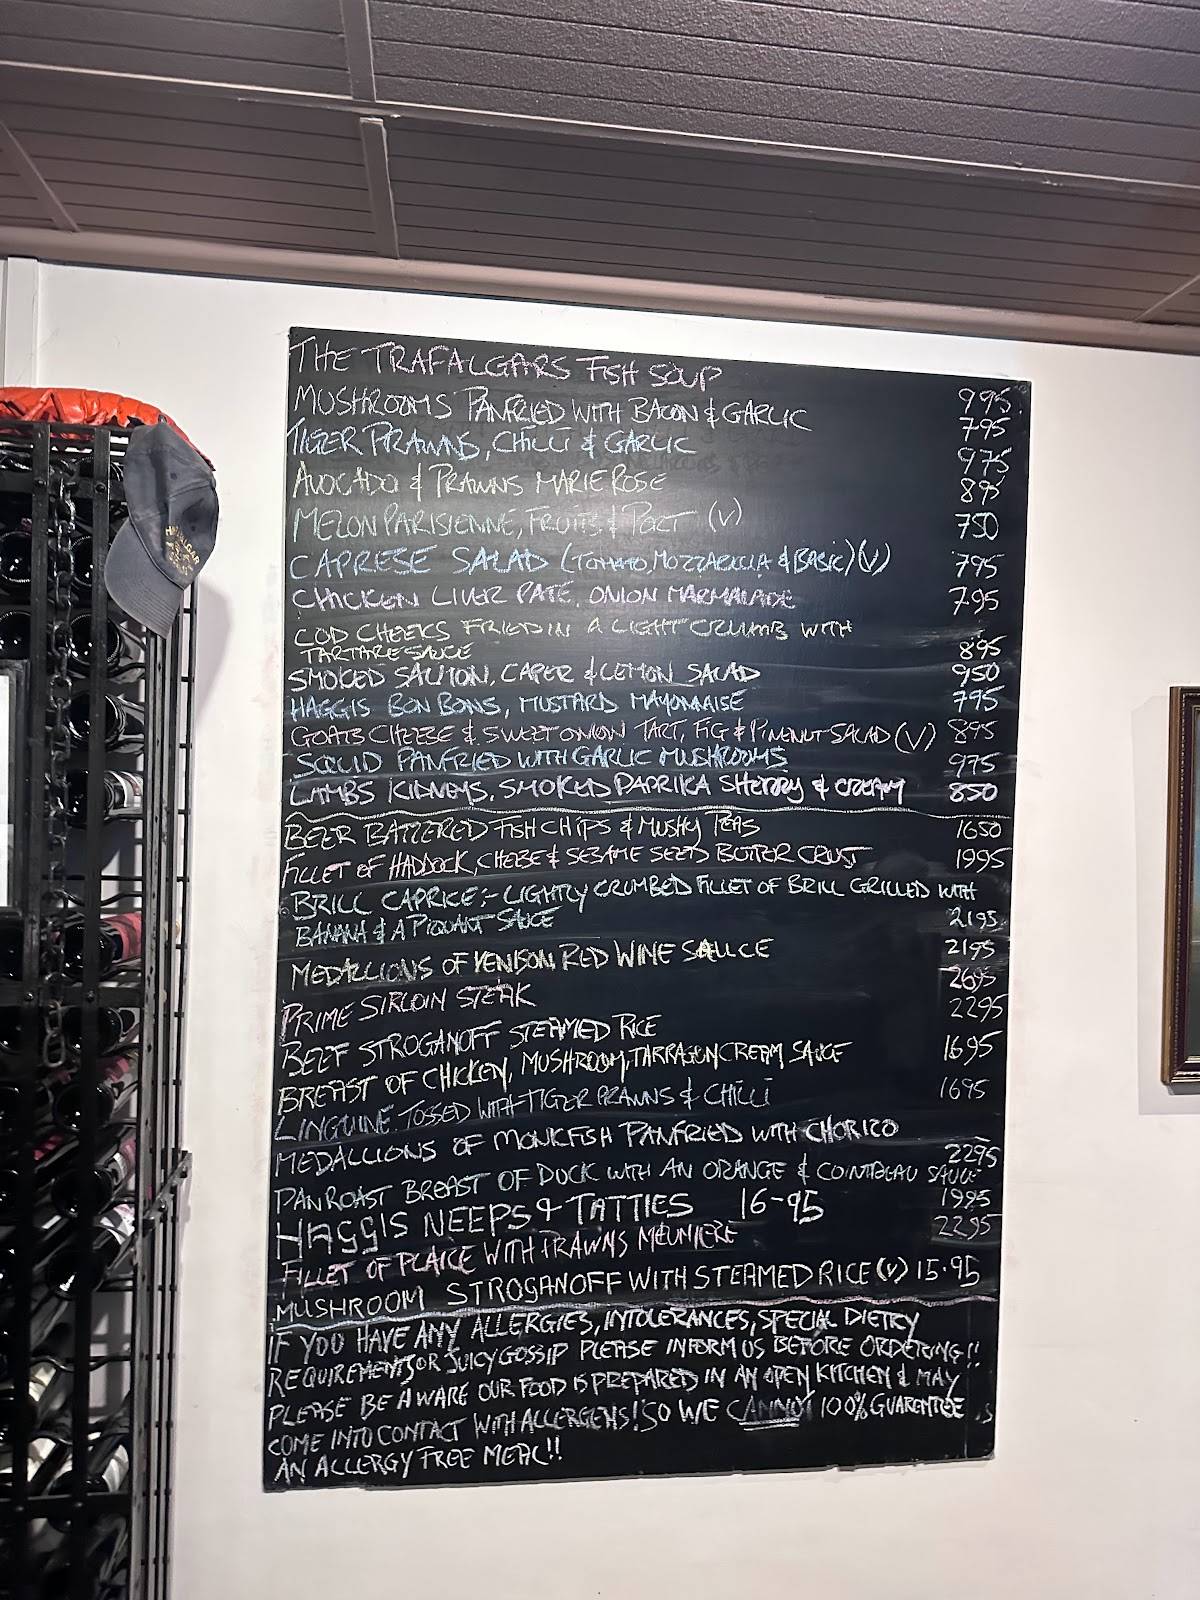 THE TRAFALGARS FISH SOUP 995
MUSHROOMS PANFRIED WITH BACON & GARLIC 795
TIGER PRAWNS, CHILLI & GARLIC 975
AVOCADO & PRAWNS MARIE ROSE 895
MELON PARISIENNE, FRUITS & PORT (V) 750
CAPRESE SALAD (TOMATO, MOZZARELLA & BASIC) (V) 795
CHICKEN LIVER PATE, ONION MARMALADE 795
COD CHEEKS FRIED IN A LIGHT CRUMB WITH
TARTARE SAUCE 895
SMOKED SALMON, CAPER & LEMON SALAD 950
HAGGIS BON BONS, MUSTARD MAYONNAISE 795
GOATS CHEESE & SWEET ONION TART, FIG & PINENUT SALAD (V) 895
SQUID PANFRIED WITH GARLIC MUSHROOMS 975
LAMBS KIDNEYS, SMOKED PAPRIKA SHERRY & CREAM 850
BEER BATTERED FISH CHIPS & MUSHY PEAS 1650
FILLET OF HADDOCK, CHEESE & SESAME SEED BUTTER CRUST 1995
BRILL CAPRICE:- LIGHTLY CRUMBED FILLET OF BRILL GRILLED WITH
BANANA & A PIQUANT SAUCE 2195
MEDALLIONS OF VENISON, RED WINE SAUCE 2195
PRIME SIRLOIN STEAK 2695
BEEF STROGANOFF STEAMED RICE 2295
BREAST OF CHICKEN, MUSHROOM, TARRAGON CREAM SAUCE 1695
LINGUINE TOSSED WITH TIGER PRAWNS & CHILLI 1695
MEDALLIONS OF MONKFISH PANFRIED WITH CHORIZO 2295
PAN ROAST BREAST OF DUCK WITH AN ORANGE & COINTREAU SAUCE 1995
HAGGIS NEEPS & TATTIES 16-95
FILLET OF PLAICE WITH PRAWNS MEUNIERE 2295
MUSHROOM STROGANOFF WITH STEAMED RICE (V) 15.95
IF YOU HAVE ANY ALLERGIES, INTOLERANCES, SPECIAL DIETRY
REQUIREMENTS OR JUICY GOSSIP PLEASE INFORM US BEFORE ORDERING!!
PLEASE BE AWARE OUR FOOD IS PREPARED IN AN OPEN KITCHEN & MAY
COME INTO CONTACT WITH ALLERGENS! SO WE CANNOT 100% GUARENTEE
AN ALLERGY FREE MEAL!!